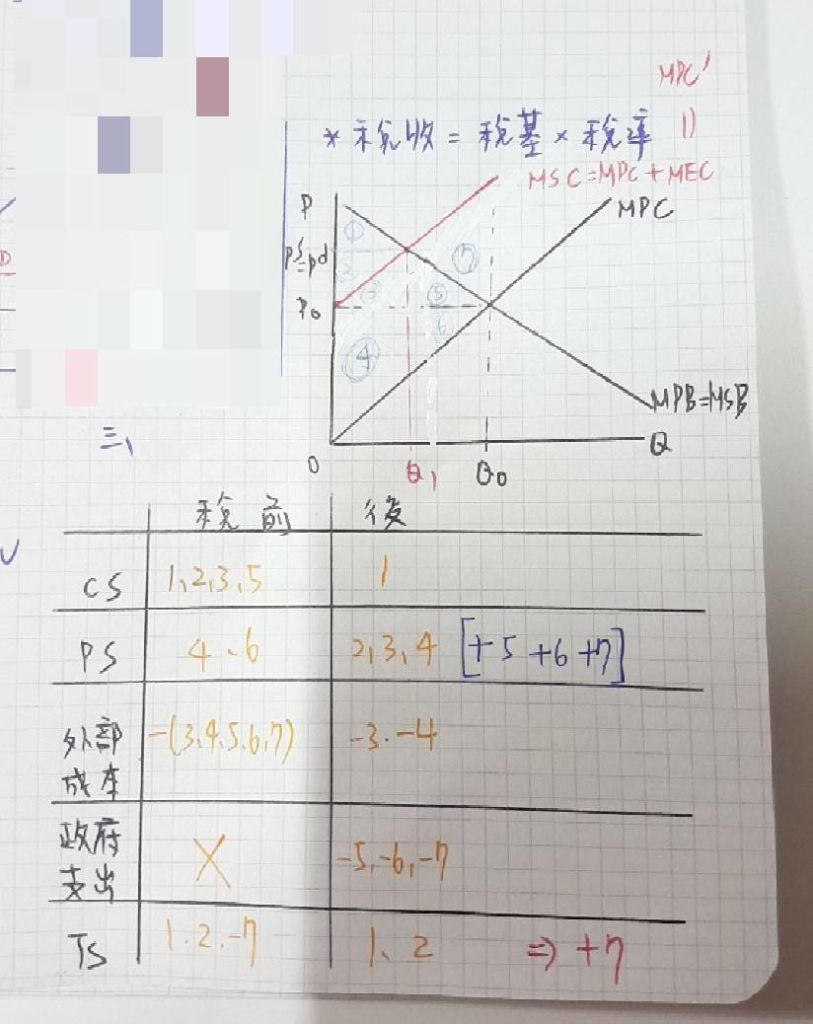 MPC'
* 稅收 = 稅基 × 稅率 ||
MSC=MPC+MEC
P
MPC
①
Ps=Pd
2
⑦
3
⑤
P0
6
④
MPB=MSB
三、
0
Q1
Q0
Q
稅前
後
CS
1、2、3、5
1
PS
4、6
2、3、4 [+5+6+7]
外部成本
-(3、4、5、6、7)
-3、-4
政府支出
X
-5、-6、-7
TS
1、2、-7
1、2
⇒ +7